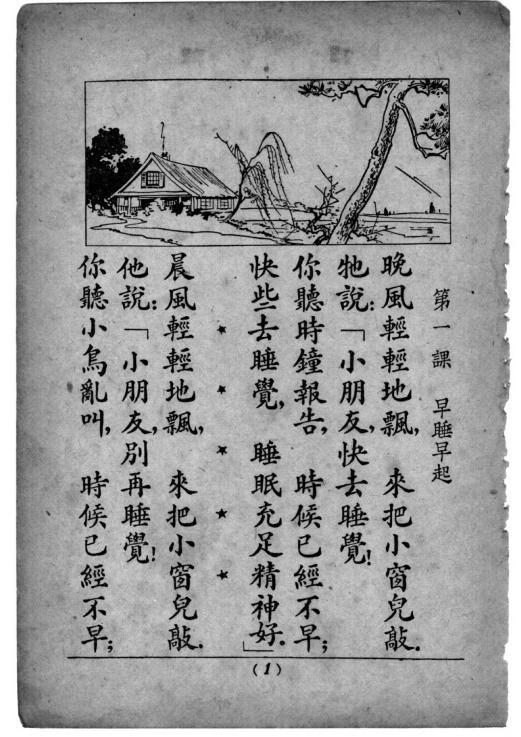 第一課　早睡早起
晚風輕輕地飄,　來把小窗兒敲.
牠說:「小朋友,快去睡覺!
你聽時鐘報告,　時候已經不早;
快些去睡覺,　睡眠充足精神好.」
★　★　★　★　★
晨風輕輕地飄,　來把小窗兒敲.
他說:「小朋友,別再睡覺!
你聽小鳥亂叫,　時候已經不早;
(1)